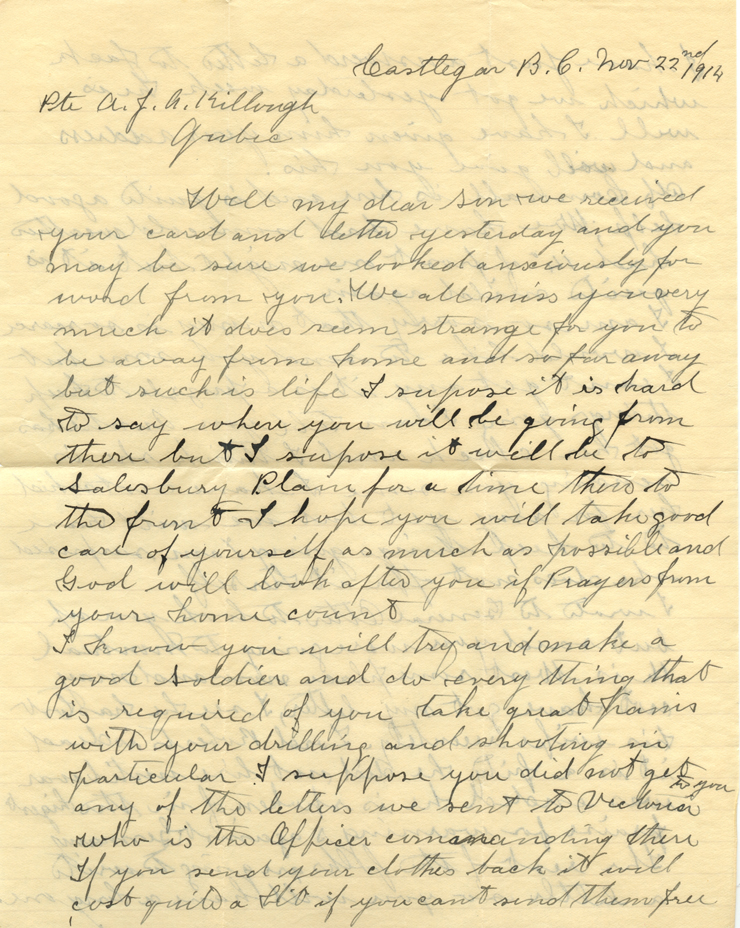 Castlegar B.C. Nov 22nd 1914
Pte A. J. A. Killough
Qubec
Well my dear Son we received
your card and letter yesterday and you
may be sure we looked anxiously for
word from you. We all miss you very
much it does seem strange for you to
be away from home and so far away
but such is life I supose it is hard
to say where you will be going from
there but I supose it will be to
Salesbury Plain for a time then to
the front I hope you will take good
care of yourself as much as possible and
God will look after you if Prayers from
your home count
I know you will try and make a
good Soldier and do every thing that
is required of you take great pains
with your drilling and shooting in
particular. I suppose you did not get
any of the letters we sent to you to Victoria
who is the Officer commanding there
If you send your clothes back it will
cost quite a bit if you cant send them free